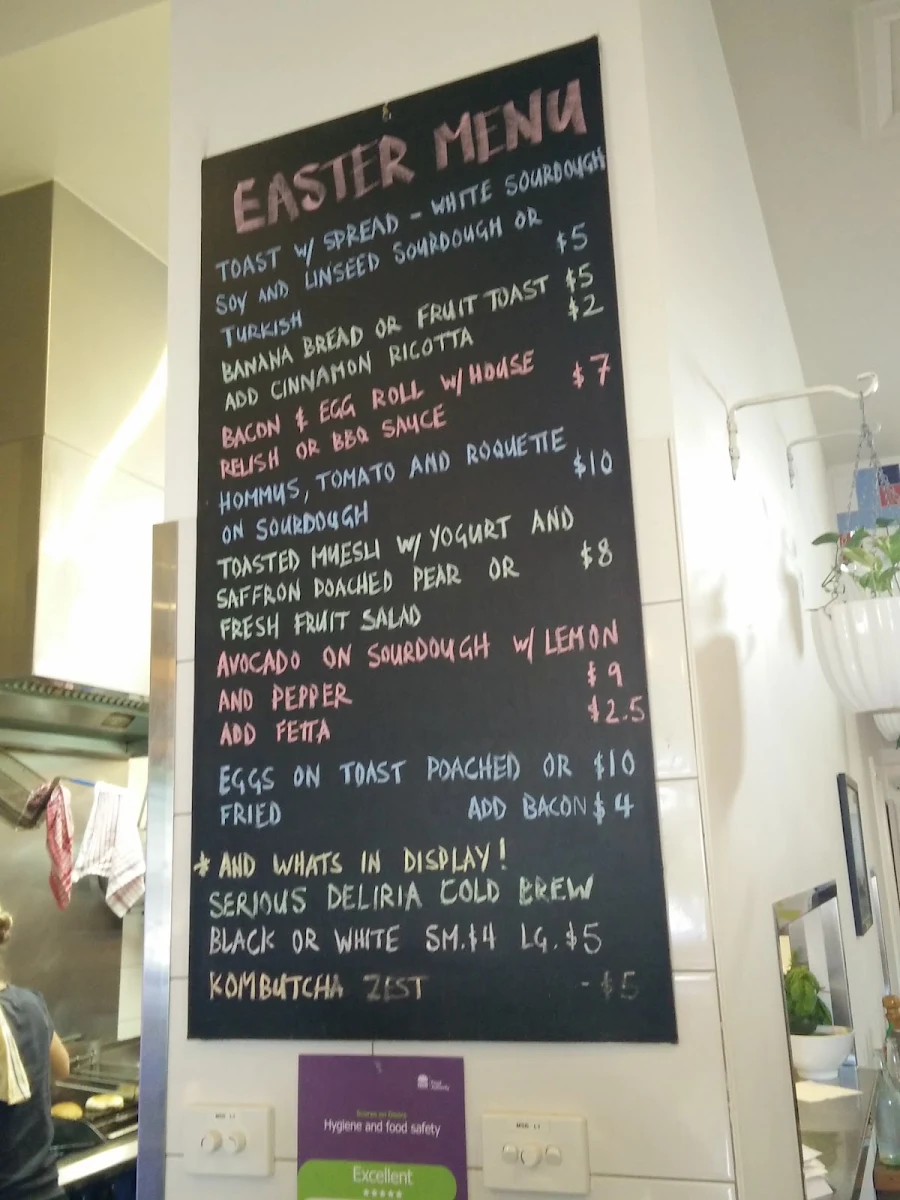 EASTER MENU
TOAST W/ SPREAD - WHITE SOURDOUGH
SOY AND LINSEED SOURDOUGH OR $5
TURKISH
BANANA BREAD OR FRUIT TOAST $5
ADD CINNAMON RICOTTA $2
BACON & EGG ROLL W/ HOUSE $7
RELISH OR BBQ SAUCE
HOMMUS, TOMATO AND ROQUETTE $10
ON SOURDOUGH
TOASTED MUESLI W/ YOGURT AND
SAFFRON POACHED PEAR OR $8
FRESH FRUIT SALAD
AVOCADO ON SOURDOUGH W/ LEMON
AND PEPPER $9
ADD FETTA $2.5
EGGS ON TOAST POACHED OR $10
FRIED ADD BACON $4
* AND WHATS IN DISPLAY!
SERIOUS DELIRIA COLD BREW
BLACK OR WHITE SM.$4 LG.$5
KOMBUTCHA ZEST - $5
Hygiene and food safety
Excellent